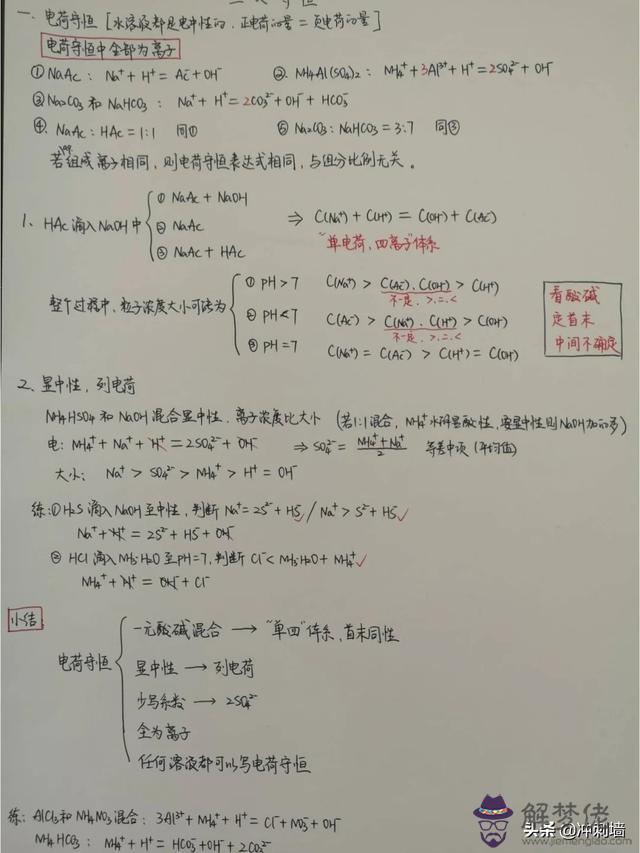 一、电荷守恒 [水溶液都是电中性的, 正电荷的量 = 负电荷的量]
电荷守恒中全部为离子
① NaAc : Na⁺ + H⁺ = Ac⁻ + OH⁻
②. NH₄Al(SO₄)₂ : NH₄⁺ + 3Al³⁺ + H⁺ = 2SO₄²⁻ + OH⁻
③ Na₂CO₃ 和 NaHCO₃ : Na⁺ + H⁺ = 2CO₃²⁻ + OH⁻ + HCO₃⁻
④. NaAc : HAc = 1:1 同①
⑤ Na₂CO₃ : NaHCO₃ = 3:7 同③
若组成离子相同, 则电荷守恒表达式相同, 与组分比例无关。
1、HAc 滴入 NaOH 中
① NaAc + NaOH
② NaAc
③ NaAc + HAc
⇒ C(Na⁺) + C(H⁺) = C(OH⁻) + C(Ac⁻)
"单电荷, 四离子"体系
整个过程中, 粒子浓度大小可能为
① PH > 7 C(Na⁺) > C(Ac⁻) . C(OH⁻) > C(H⁺)
不一定, >.=.<
② PH < 7 C(Ac⁻) > C(Na⁺) . C(H⁺) > C(OH⁻)
不一定, >.=.<
③ PH = 7 C(Na⁺) = C(Ac⁻) > C(H⁺) = C(OH⁻)
看酸碱
定首末
中间不确定
2、显中性, 列电荷
NH₄HSO₄ 和 NaOH 混合显中性, 离子浓度比大小 (若1:1混合, NH₄⁺水解显酸性, 要显中性则NaOH加的多)
电: NH₄⁺ + Na⁺ + H⁺ = 2SO₄²⁻ + OH⁻ ⇒ SO₄²⁻ = (NH₄⁺ + Na⁺)/2 等差中项 (平均值)
大小: Na⁺ > SO₄²⁻ > NH₄⁺ > H⁺ = OH⁻
练: ① H₂S 滴入 NaOH 至中性, 判断 Na⁺ = 2S²⁻ + HS⁻ ✓ / Na⁺ > S²⁻ + HS⁻ ✓
Na⁺ + H⁺ = 2S²⁻ + HS⁻ + OH⁻
② HCl 滴入 NH₃·H₂O 至 PH=7, 判断 Cl⁻ < NH₃·H₂O + NH₄⁺ ✓
NH₄⁺ + H⁺ = OH⁻ + Cl⁻
小结
电荷守恒
一元酸碱混合 → "单四"体系, 首末同性
显中性 → 列电荷
少写系数 → 2SO₄²⁻
全为离子
任何溶液都可以写电荷守恒
练: AlCl₃和 NH₄NO₃混合: 3Al³⁺ + NH₄⁺ + H⁺ = Cl⁻ + NO₃⁻ + OH⁻
NH₄HCO₃ : NH₄⁺ + H⁺ = HCO₃⁻ + OH⁻ + 2CO₃²⁻
解梦佬
www.jiemenglao.com
头条 @冲刺墙